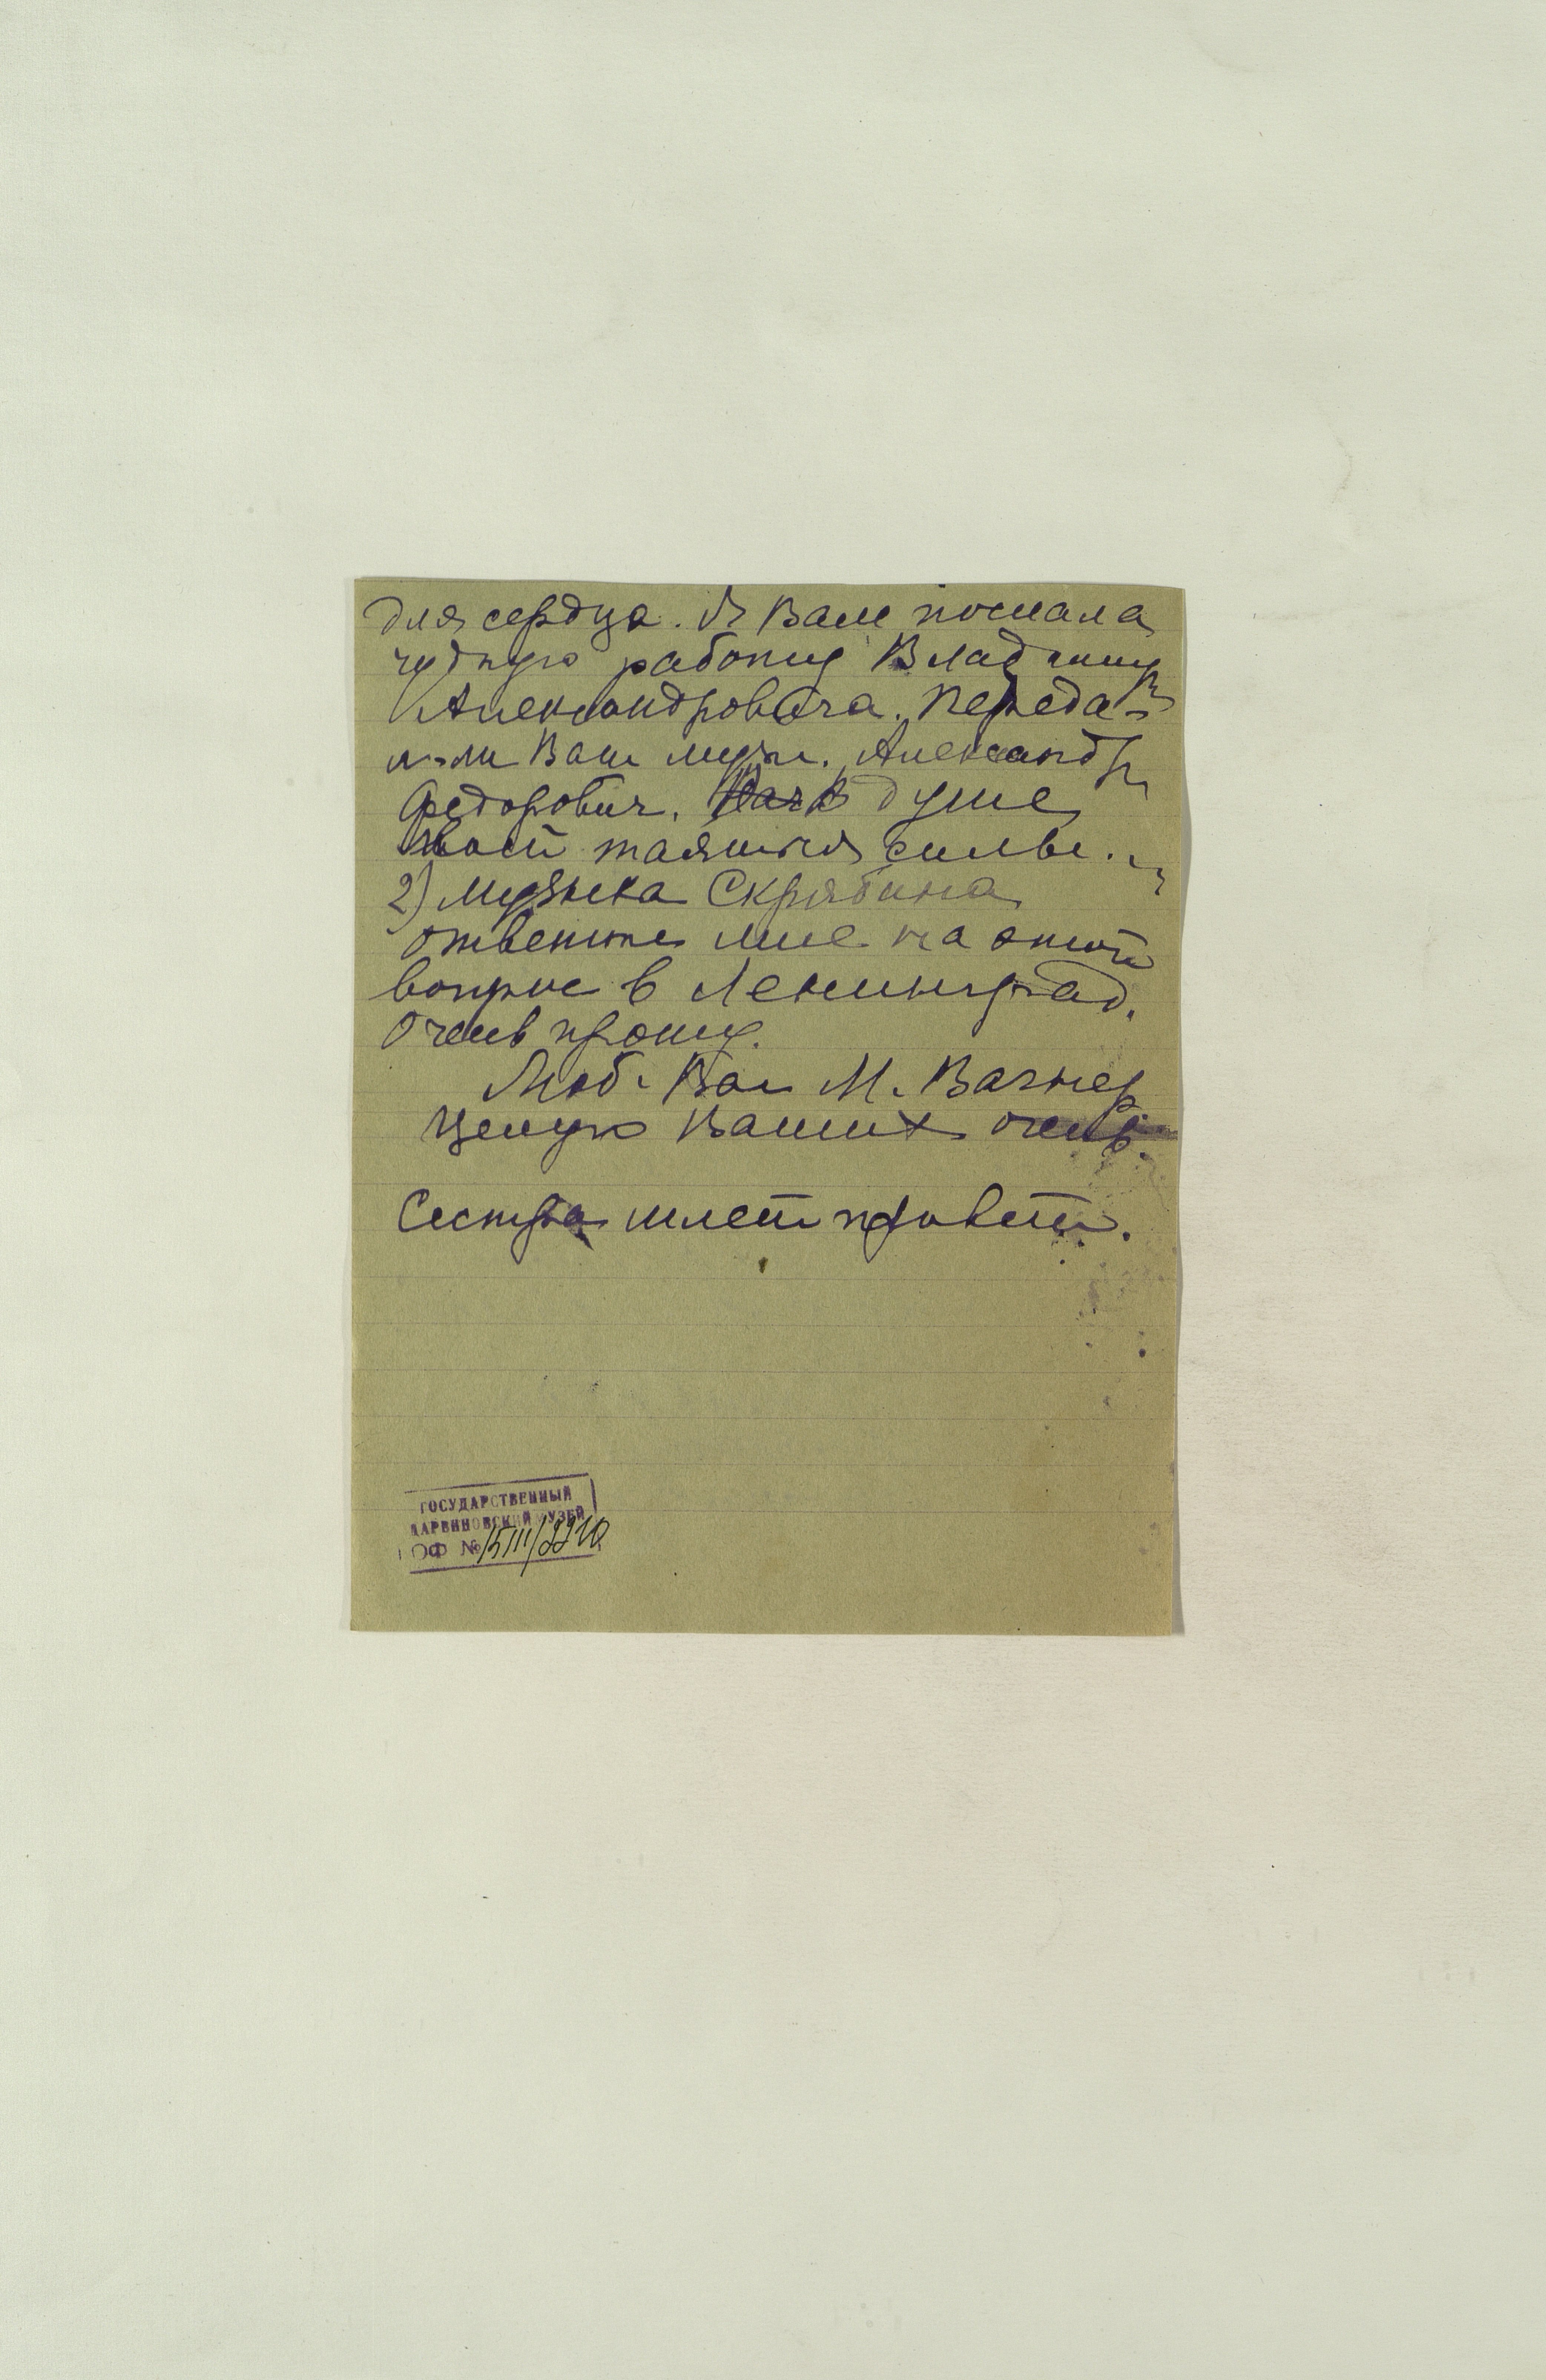 для сердца. Я Вам послала
чудную работу Владимира
Александровича. Переда-
л-ли Ваш муж. Александр
Федорович. В душе
твоей таятся силы.
2) Музыка Скрябина
ответьте мне на этот
вопрос в Ленинград.
очень прошу.
Люб. Вас М. Вагнер
Целую Ваших очень.
Сестра шлет привет.
ГОСУДАРСТВЕННЫЙ
ДАРВИНОВСКИЙ МУЗЕЙ
ОФ № 15111/2210